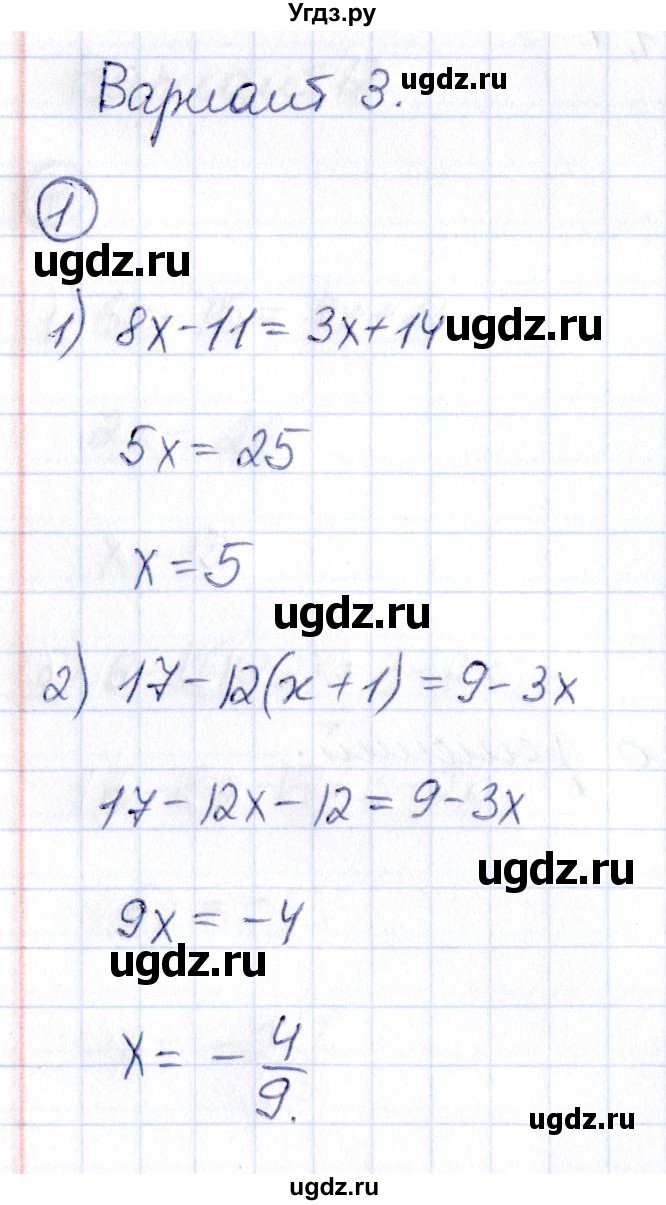 Угдз.ру
Вариант 3. ugdz.ru
1
ugdz.ru
1) 8x-11=3x+14 ugdz.ru
5x=25
x=5
ugdz.ru
2) 17-12(x+1)=9-3x
17-12x-12=9-3x
ugdz.ru
9x=-4
ugdz.ru
x=-4/9.
ugdz.ru
ugdz.ru